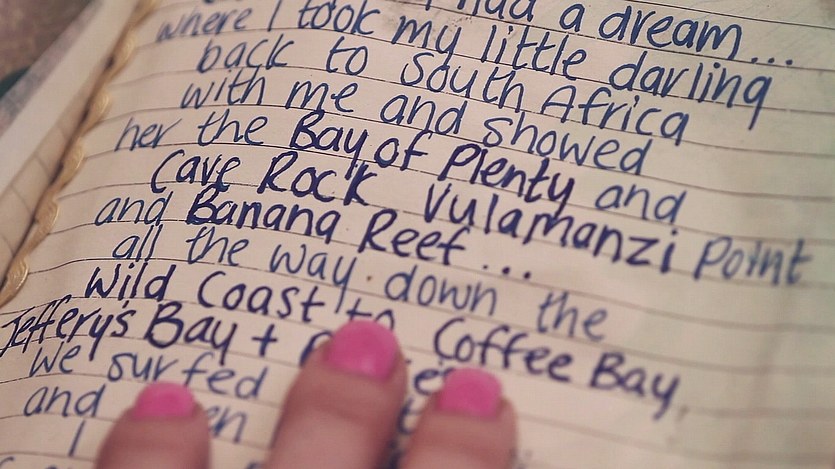 had a dream...
where I took my little darling
back to South Africa
with me and showed
her the Bay of Plenty and
Cave Rock Vulamanzi Point
and Banana Reef...
all the way down the
Wild Coast to Coffee Bay,
Jeffery's Bay +
we surfed
and
I